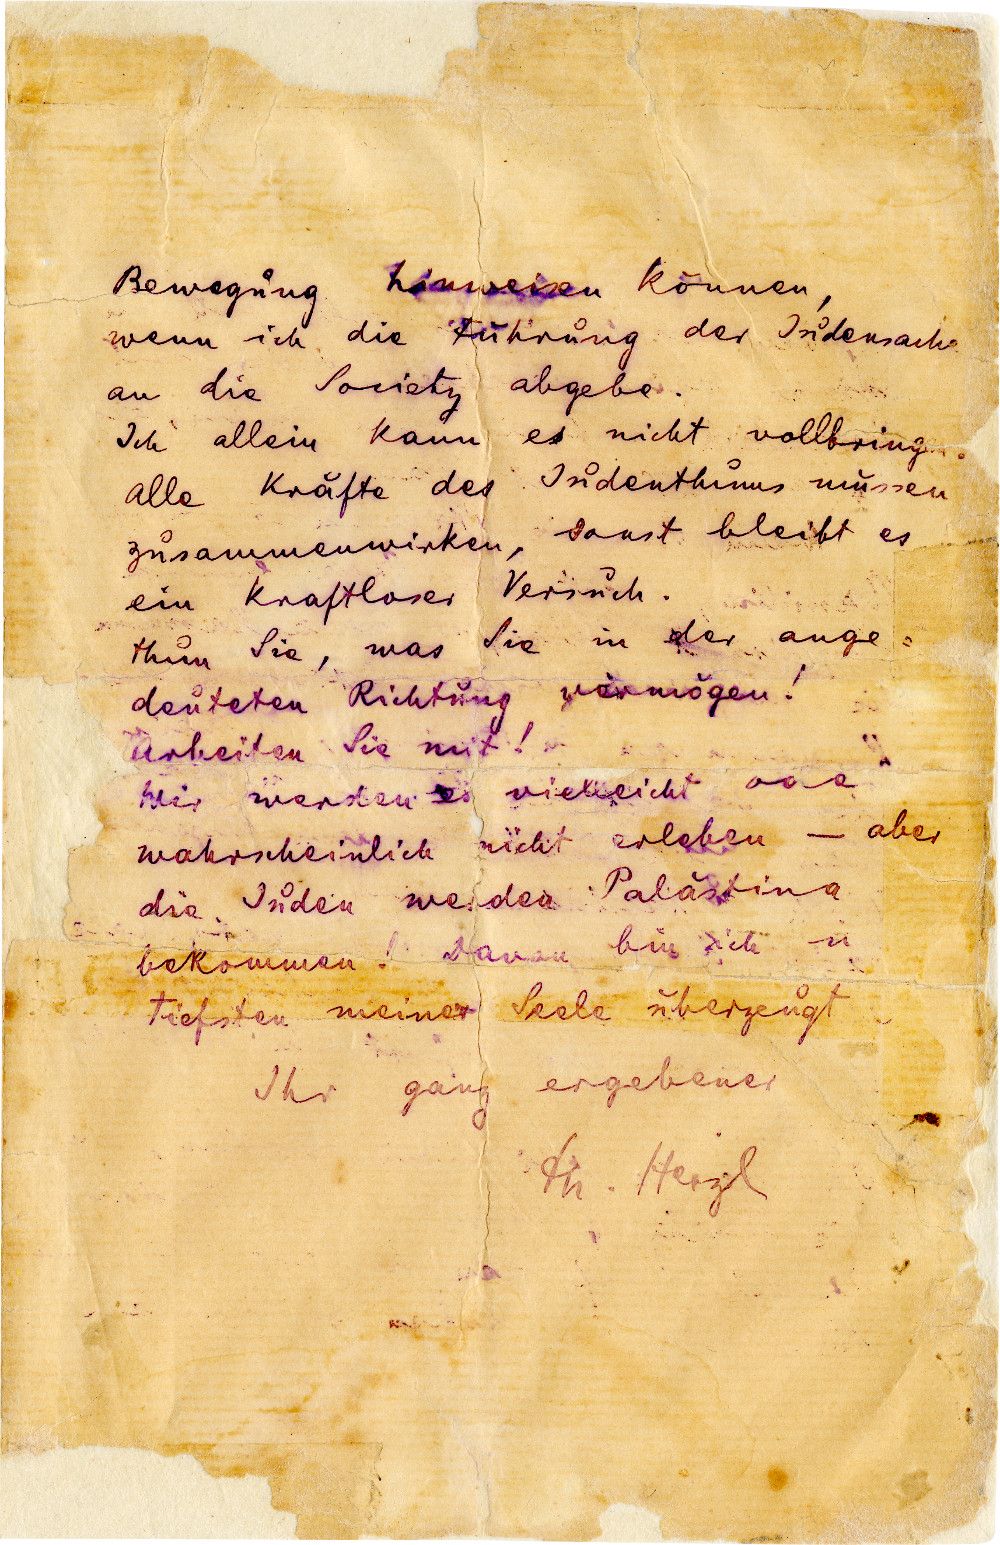 Bewegung hinweisen können,
wenn ich die Führung der Judensache
an die Society abgebe.
Ich allein kann es nicht vollbring
alle Kräfte des Judenthums müssen
zusammenwirken, sonst bleibt es
ein kraftloser Versuch.
thun Sie, was Sie in der ange=
deuteten Richtung vermögen!
Arbeiten Sie mit!
Wir werden es vielleicht ode
wahrscheinlich nicht erleben — aber
die Juden werden Palästina
bekommen! Davon bin ich
tiefsten meiner Seele überzeugt
Ihr ganz ergebener
Th. Herzl